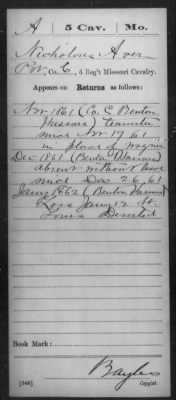 A | 5 Cav. | Mo.
Nicholous Aver
Pvt., Co. C, 5 Reg't Missouri Cavalry.
Appears on Returns as follows:
Nov 1861 (Co. C Benton
Hussars) teamster
since Nov 19 61
in place of
Dec 1861 (Benton Hussars)
absent without leave
since Dec 26, 61
Jany 1862 (Benton Hussars)
Loss Jany 12 St.
Louis Deserted
Book Mark:
Bayles
(546) Copyist.